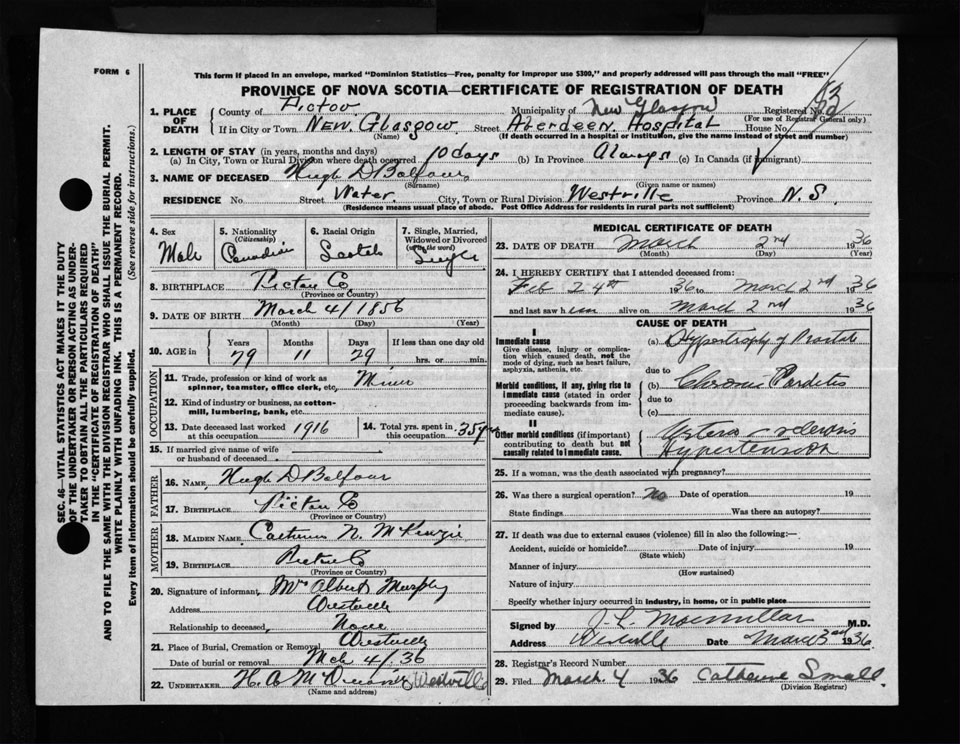 FORM 6
This form if placed in an envelope, marked "Dominion Statistics—Free, penalty for improper use $300," and properly addressed will pass through the mail "FREE"
PROVINCE OF NOVA SCOTIA—CERTIFICATE OF REGISTRATION OF DEATH
1. PLACE OF DEATH
County of Pictou Municipality of New Glasgow Registered No.
(For use of Registrar General only)
If in City or Town New Glasgow Street Aberdeen Hospital House No.
(Name) (If death occurred in a hospital or institution, give the name instead of street and number)
2. LENGTH OF STAY (in years, months and days)
(a) In City, Town or Rural Division where death occurred 10 days (b) In Province Always (c) In Canada (if immigrant)
3. NAME OF DECEASED Hugh D Balfour
(Surname) (Given name or names)
RESIDENCE No. Street Water City, Town or Rural Division Westville Province N.S.
(Residence means usual place of abode. Post Office Address for residents in rural parts not sufficient)
4. Sex
Male
5. Nationality
(Citizenship)
Canadian
6. Racial Origin
7. Single, Married, Widowed or Divorced
Single
8. BIRTHPLACE Pictou Co
(Province or Country)
9. DATE OF BIRTH March 4/1856
(Month) (Day) (Year)
10. AGE in
Years Months Days If less than one day old
79 11 29 hrs. or min.
OCCUPATION
11. Trade, profession or kind of work as spinner, teamster, office clerk, etc. Miner
12. Kind of industry or business, as cotton-mill, lumbering, bank, etc.
13. Date deceased last worked at this occupation 1916
14. Total yrs. spent in this occupation 35 yrs
15. If married give name of wife or husband of deceased
FATHER
16. NAME Hugh D Balfour
17. BIRTHPLACE Pictou Co
(Province or Country)
MOTHER
18. MAIDEN NAME N. McKenzie
19. BIRTHPLACE Pictou Co
(Province or Country)
20. Signature of informant Mrs Albert Murphy
Address Westville
Relationship to deceased None
21. Place of Burial, Cremation or Removal Westville
Date of burial or removal Mch 4/36
22. UNDERTAKER H. A. Westville
(Name and address)
MEDICAL CERTIFICATE OF DEATH
23. DATE OF DEATH March 2nd 1936
(Month) (Day) (Year)
24. I HEREBY CERTIFY that I attended deceased from:
Feb 24th 1936 to March 2nd 1936
and last saw him alive on March 2nd 1936
CAUSE OF DEATH
I
Immediate cause
Give disease, injury or complication which caused death, not the mode of dying, such as heart failure, asphyxia, asthenia, etc.
(a) Hypertrophy of Prostate
due to
Morbid conditions, if any, giving rise to immediate cause (stated in order proceeding backwards from immediate cause).
(b) Chronic
due to
(c)
II
Other morbid conditions (if important) contributing to death but not causally related to immediate cause.
Arterio-sclerosis
Hypertension
25. If a woman, was the death associated with pregnancy?
26. Was there a surgical operation? No Date of operation 19
State findings Was there an autopsy?
27. If death was due to external causes (violence) fill in also the following:—
Accident, suicide or homicide? Date of injury 19
(State which)
Manner of injury
(How sustained)
Nature of injury
Specify whether injury occurred in industry, in home, or in public place
Signed by Macmillan M.D.
Address Westville Date March 3rd 1936
28. Registrar's Record Number
29. Filed March 4 1936 Catherine Small
(Division Registrar)
SEC. 46—VITAL STATISTICS ACT MAKES IT THE DUTY
OF THE UNDERTAKER OR PERSON ACTING AS UNDER-
TAKER TO OBTAIN ALL THE PARTICULARS REQUIRED
IN THE "CERTIFICATE OF REGISTRATION OF DEATH"
AND TO FILE THE SAME WITH THE DIVISION REGISTRAR WHO SHALL ISSUE THE BURIAL PERMIT.
WRITE PLAINLY WITH UNFADING INK. THIS IS A PERMANENT RECORD.
Every item of information should be carefully supplied. (See reverse side for instructions.)